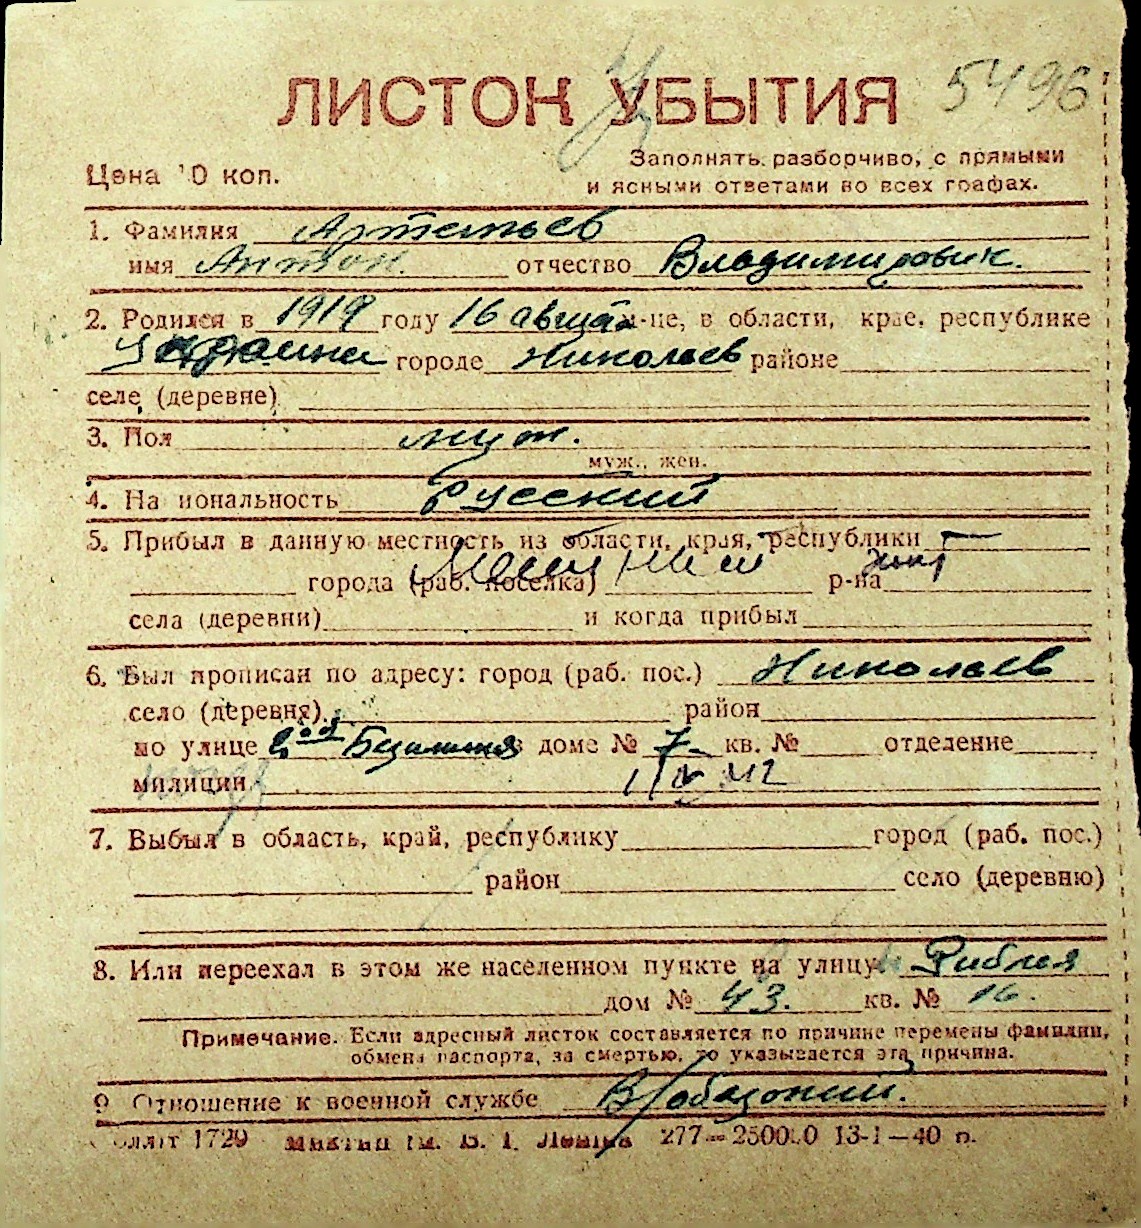 ЛИСТОК УБЫТИЯ 5496
Цена 10 коп.
Заполнять разборчиво, с прямыми
и ясными ответами во всех графах.
1. Фамилия Артемьев
имя Антон. отчество Владимирович.
2. Родился в 1919 году 16 августа м-це, в области, крае, республике
Украина городе Николаев районе
селе (деревне)
3. Пол муж.
муж., жен.
4. Национальность Русский
5. Прибыл в данную местность из области, края, республики
города (раб. поселка) р-на
села (деревни) и когда прибыл
6. Был прописан по адресу: город (раб. пос.) Николаев
село (деревня) район
по улице в доме № 7 кв. № отделение
милиции
7. Выбыл в область, край, республику город (раб. пос.)
район село (деревню)
8. Или переехал в этом же населенном пункте на улицу Рибная
дом № 43. кв. № 16.
Примечание. Если адресный листок составляется по причине перемены фамилии,
обмена паспорта, за смертью, то указывается эта причина.
9. Отношение к военной службе В/обязаний.
1729 им. В. І. Леніна 277—250000 13-1—40 п.